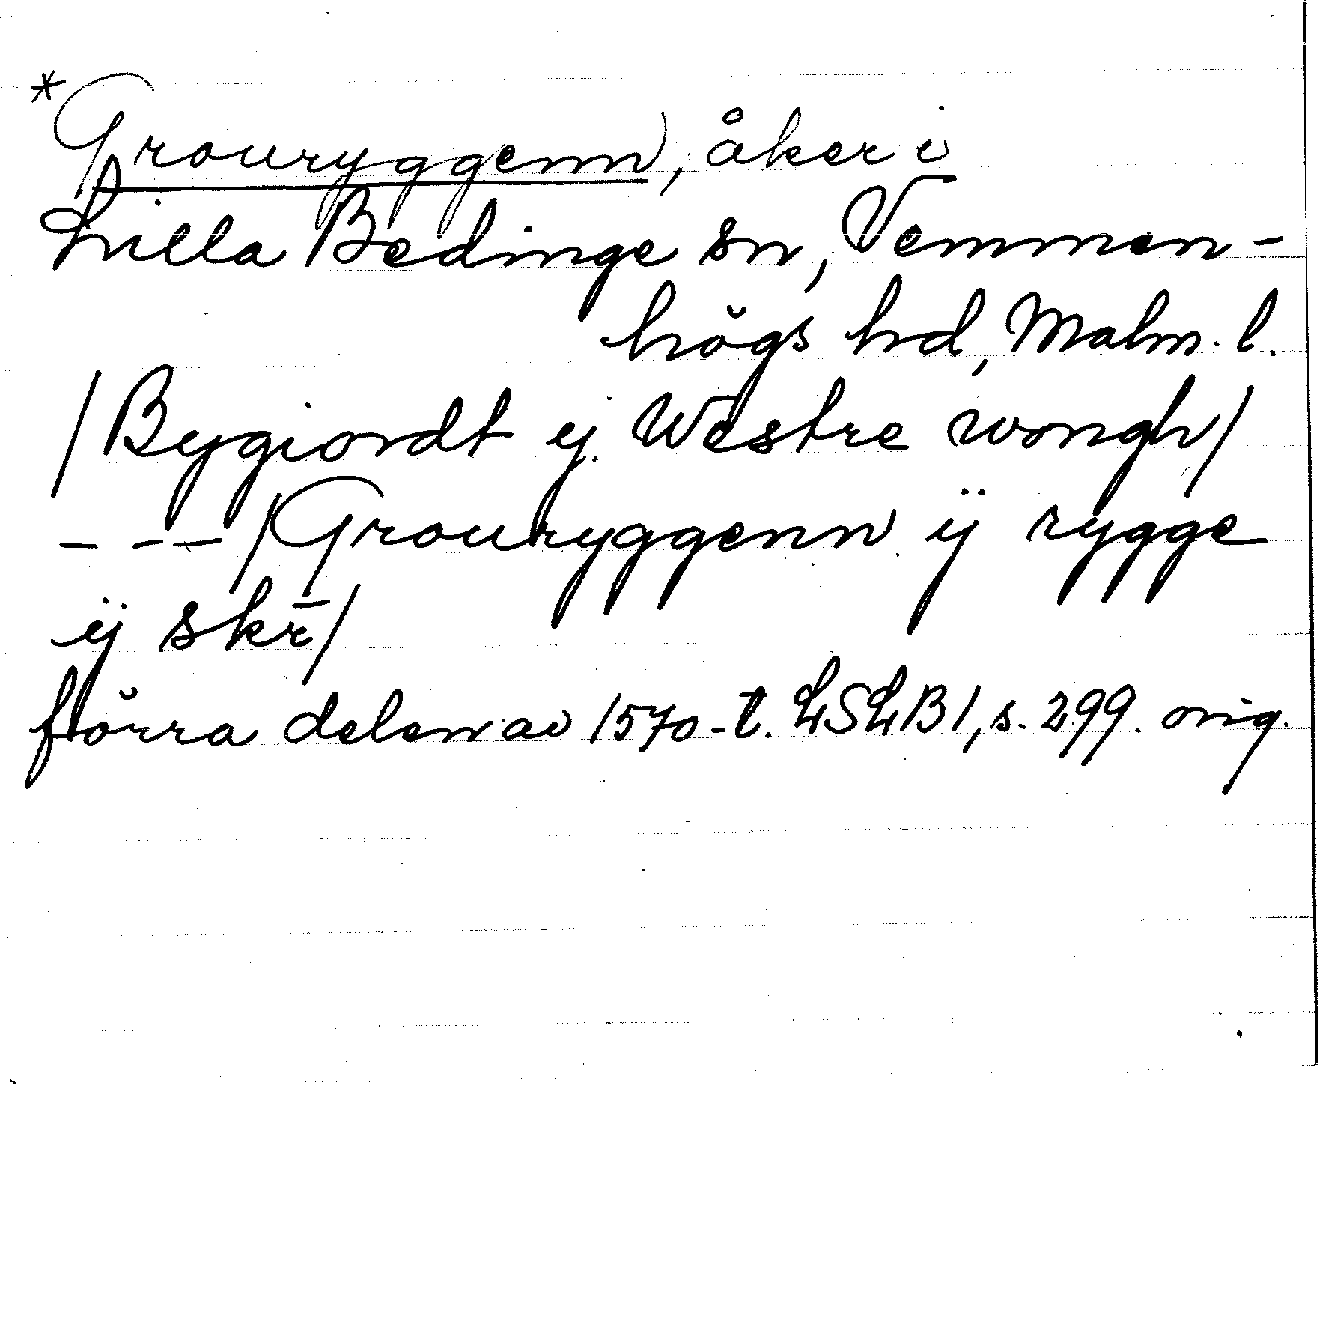 *Grouryggenn, åker i
Lilla Bedinge sn, Vemmen-
högs hd, Malm. l.
/Bygiordt ij. Westre wongh/
- - - /Grouryggenn ij rygge
ij skr̄/
förra delen av 1570-t. LSLB1, s. 299. orig.